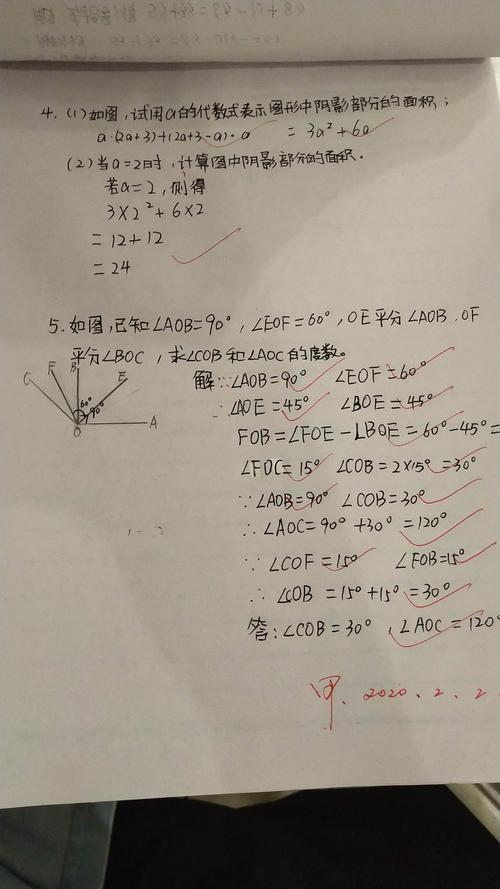 4. (1) 如图,试用a的代数式表示图形中阴影部分的面积;
a·(2a+3)+(2a+3-a)·a = 3a²+6a
(2) 当a=2时,计算图中阴影部分的面积.
若a=2,则得
3×2²+6×2
=12+12
=24
5. 如图,已知∠AOB=90°,∠EOF=60°,OE平分∠AOB.OF
平分∠BOC,求∠COB和∠AOC的度数。
C F B E
60°
90°
O A
解:∵∠AOB=90° ∠EOF=60°
∴∠AOE=45° ∠BOE=45°
FOB=∠FOE-∠BOE=60°-45°=
∠FOC=15° ∠COB=2×15°=30°
∵∠AOB=90° ∠COB=30°
∴∠AOC=90°+30°=120°
∵∠COF=15° ∠FOB=15°
∴∠COB=15°+15°=30°
答:∠COB=30°,∠AOC=120°
甲. 2020.2.2